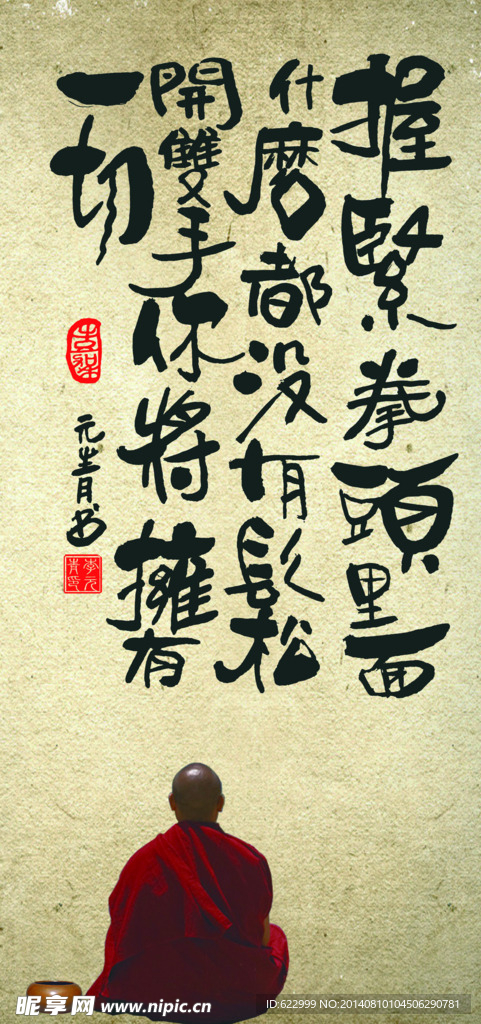 握緊拳頭里面
什磨都没有鬆
開雙手你將擁有
一切
元青书
李元青印
昵享网 www.nipic.cn
ID:622999 NO:20140810104506290781